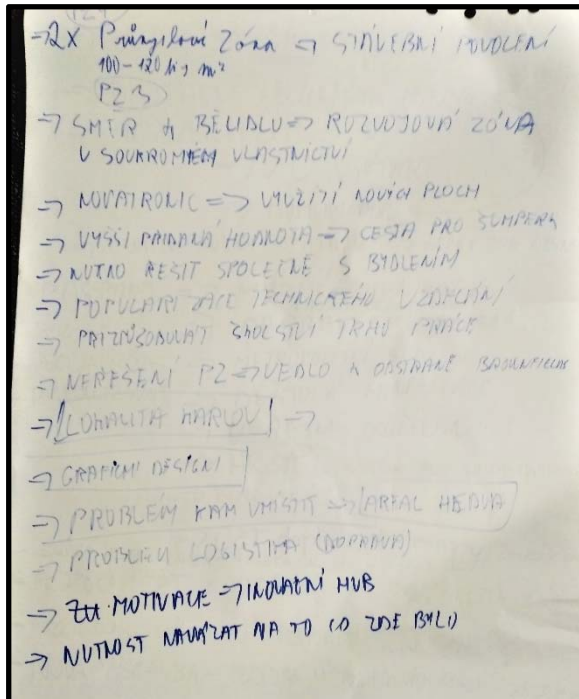 → 2x Průmyslová zóna → STAVEBNÍ POVOLENÍ
100-120 tis m²
PZ 3
→ SMĚR K BĚLIDLU → ROZVOJOVÁ ZÓNA
V SOUKROMÉM VLASTNICTVÍ
→ NOVATRONIC → VYUŽITÍ NOVÝCH PLOCH
→ VYŠŠÍ PŘIDANÁ HODNOTA → CESTA PRO ŠUMPERK
→ NUTNO ŘEŠIT SPOLEČNĚ S BYDLENÍM
→ POPULARIZACE TECHNICKÉHO VZDĚLÁNÍ
→ PŘIZPŮSOBOVAT ŠKOLSTVÍ TRHU PRÁCE
→ NEŘEŠENÍ PZ → VEDLO K BROWNFIELDS
→ LOKALITA KARLOV →
→ GRAFICKÝ DESIGN
→ PROBLÉM KAM UMÍSTIT → AREÁL HEDVA
→ PROBLÉM LOGISTIKA (DOPRAVA)
→ MOTIVACE → INOVAČNÍ HUB
→ NUTNOST NAVÁZAT NA TO CO ZDE BYLO